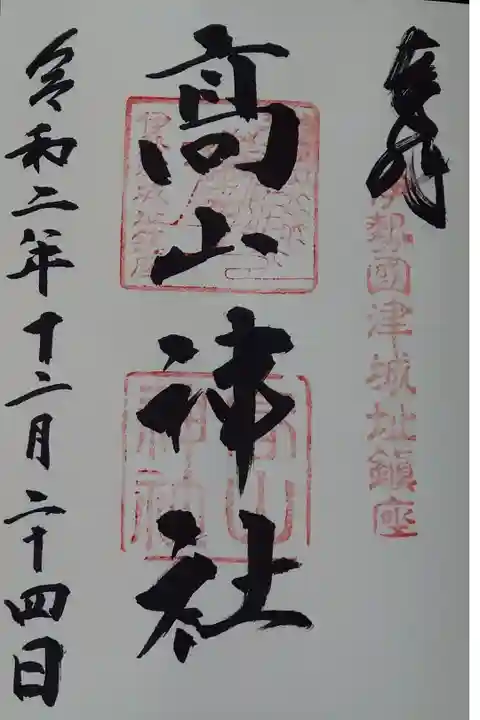 奉拝
伊勢國津城址鎮座
高山神社
高山神社
令和二年十二月二十四日